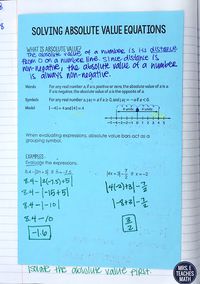 SOLVING ABSOLUTE VALUE EQUATIONS
WHAT IS ABSOLUTE VALUE?
The absolute value of a number is its distance
from 0 on a number line. Since distance is
non-negative, the absolute value of a number
is always non-negative.
Words For any real number a, if a is positive or zero, the absolute value of a is a.
If a is negative, the absolute value of a is the opposite of a.
Symbols For any real number a, |a| = a if a ≥ 0, and |a| = -a if a < 0.
Model |-4| = 4 and |4| = 4
4 units 4 units
-5 -4 -3 -2 -1 0 1 2 3 4 5
When evaluating expressions, absolute value bars act as a
grouping symbol.
EXAMPLES:
Evaluate the expressions.
8.4 - |-15 + 5|
8.4 - |-10|
8.4 - 10
-1.6
|4(-2) + 3| -
|-8 + 3| -
Isolate the absolute value first.
MRS. E
TEACHES
MATH